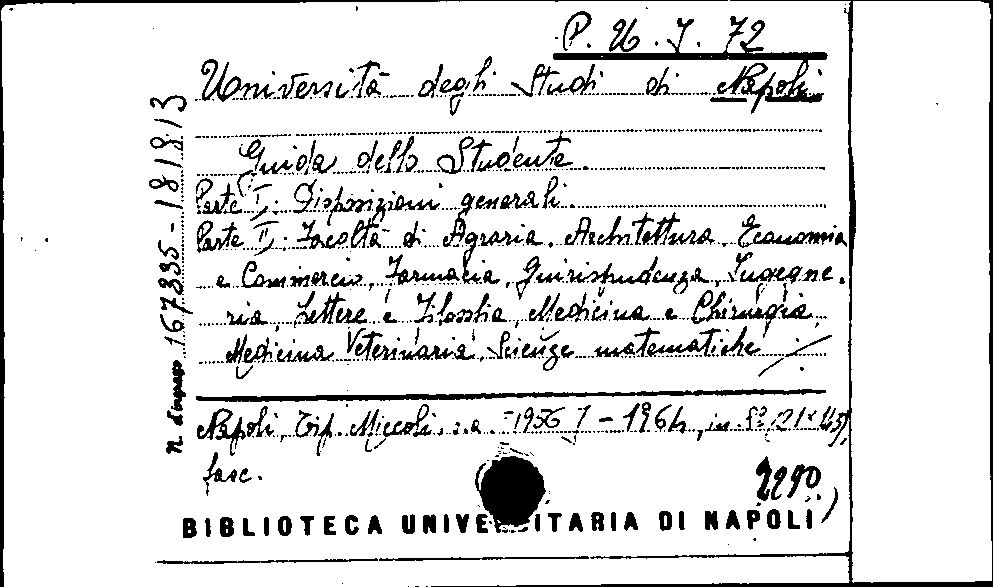 P. U. I. 72
Università degli Studi di Napoli
Guida dello Studente.
Parte I,: Disposizioni generali.
Parte II,: Facoltà di Agraria, Architettura, Economia
e Commercio, Farmacia, Giurisprudenza, Ingegne-
ria, Lettere e Filosofia, Medicina e Chirurgia,
Medicina Veterinaria, Scienze matematiche
Napoli, Tip. Miccoli, s.a. [1956] - 1964, in 8º (21x15),
fasc.
2290
BIBLIOTECA UNIVERSITARIA DI NAPOLI
n. d'ingresso 167335-181813